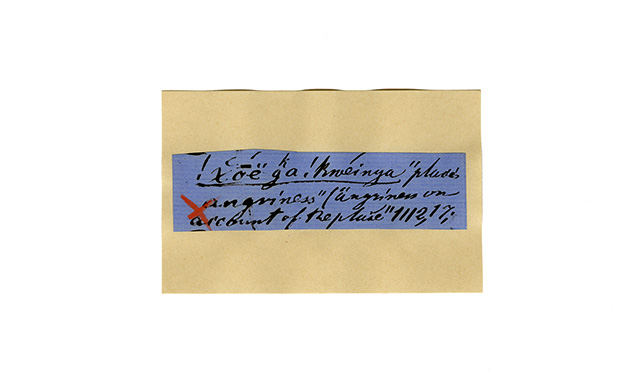 !χóë ga !kwéinya "place's
angriness" ("angriness on
account of the place" 1112,17.